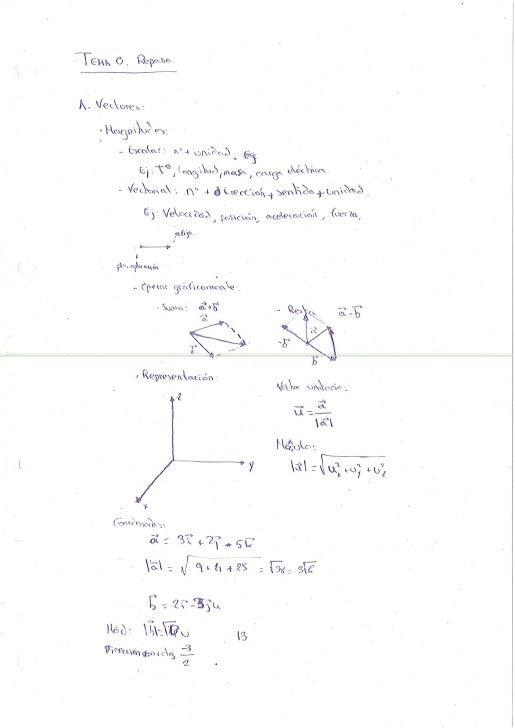 TEMA 0. Repaso
A. Vectores:
· Magnitudes:
- Escalar: nº + unidad.
Ej: Tº, longitud, masa, carga eléctrica
- Vectorial: nº + dirección + sentido + unidad.
Ej: Velocidad, posición, aceleración, fuerza,
pto. aplicación
- Operar gráficamente:
- Suma: a⃗+b⃗
- Resta
a⃗-b⃗
a⃗
b⃗
a⃗
-b⃗
b⃗
· Representación:
z
y
x
Vector unitario:
u⃗ = a⃗/|a⃗|
Módulo:
|u⃗| = √(u²x + u²y + u²z)
Coordenadas:
a⃗ = 3i⃗ + 2j⃗ + 5k⃗
|a⃗| = √(9+4+25) = √38 =
b⃗ = 2i⃗ - 3j⃗ u
Mód: |b⃗|= u
13
Dirección: -3/2